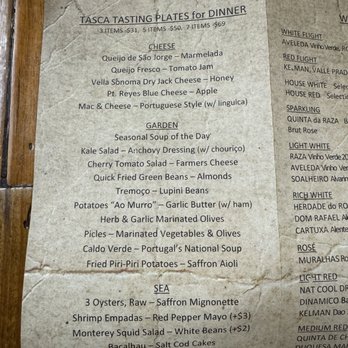 TASCA TASTING PLATES for DINNER
3 ITEMS -$31, 5 ITEMS -$50, 7 ITEMS -$69
CHEESE
Queijo de São Jorge – Marmelada
Queijo Fresco – Tomato Jam
Vella Sonoma Dry Jack Cheese – Honey
Pt. Reyes Blue Cheese – Apple
Mac & Cheese – Portuguese Style (w/ linguica)
GARDEN
Seasonal Soup of the Day
Kale Salad – Anchovy Dressing (w/ chouriço)
Cherry Tomato Salad – Farmers Cheese
Quick Fried Green Beans – Almonds
Tremoço – Lupini Beans
Potatoes "Ao Murro" – Garlic Butter (w/ ham)
Herb & Garlic Marinated Olives
Picles – Marinated Vegetables & Olives
Caldo Verde – Portugal's National Soup
Fried Piri-Piri Potatoes – Saffron Aioli
SEA
3 Oysters, Raw – Saffron Mignonette
Shrimp Empadas – Red Pepper Mayo (+$3)
Monterey Squid Salad – White Beans (+$2)
Bacalhau – Salt Cod Cakes
W
WHITE FLIGHT
AVELEDA Vinho Verde,
RED FLIGHT
KELMAN, VALLE PRAD
HOUSE WHITE Selecti
HOUSE RED Selecti
SPARKLING
QUINTA da RAZA
Brut Rose
LIGHT WHITE
RAZA Vinho Verde 20
AVELEDA Vinho Verde
SOALHEIRO Alvarin
RICH WHITE
HERDADE do RO
DOM RAFAEL Al
CARTUXA Alente
ROSÉ
MURALHAS Ro
LIGHT RED
NAT COOL DR
DINAMICO Ba
KELMAN Dao
MEDIUM RED
QUINTA DE CH
DUQUESA MAR